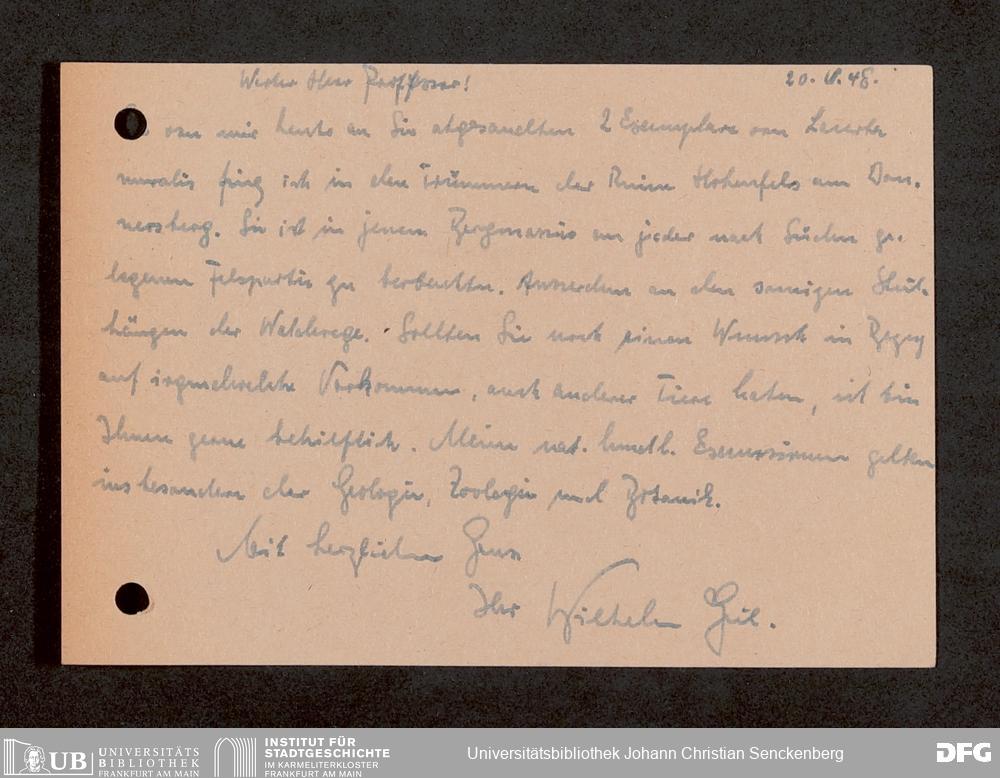 Werter Herr Professor! 20. 48.
von mir heute an Sie abgesandten 2 Exemplare von Lacerta
muralis fing ich in den Trümmern der Ruine Hohenfels am Don-
nersberg. Sie ist in jenem Bergmassiv an jeder nach Süden ge-
legenen Felspartie zu beobachten. Ausserdem an den sonnigen Steil-
hängen der Waldwege. Sollten Sie noch einen Wunsch in Bezug
auf irgendwelche Vorkommen, auch anderer Tiere haben, ich bin
Ihnen gerne behilflich. Meine nat. kundl. Exkursionen gelten
insbesondere der Geologie, Zoologie und Botanik.
Mit herzlichem Gruss
Ihr Wilhelm
UB UNIVERSITÄTS
BIBLIOTHEK
FRANKFURT AM MAIN
INSTITUT FÜR
STADTGESCHICHTE
IM KARMELITERKLOSTER
FRANKFURT AM MAIN
Universitätsbibliothek Johann Christian Senckenberg
DFG